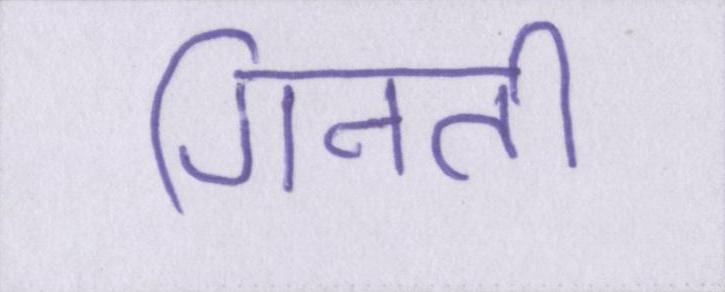 गिनती